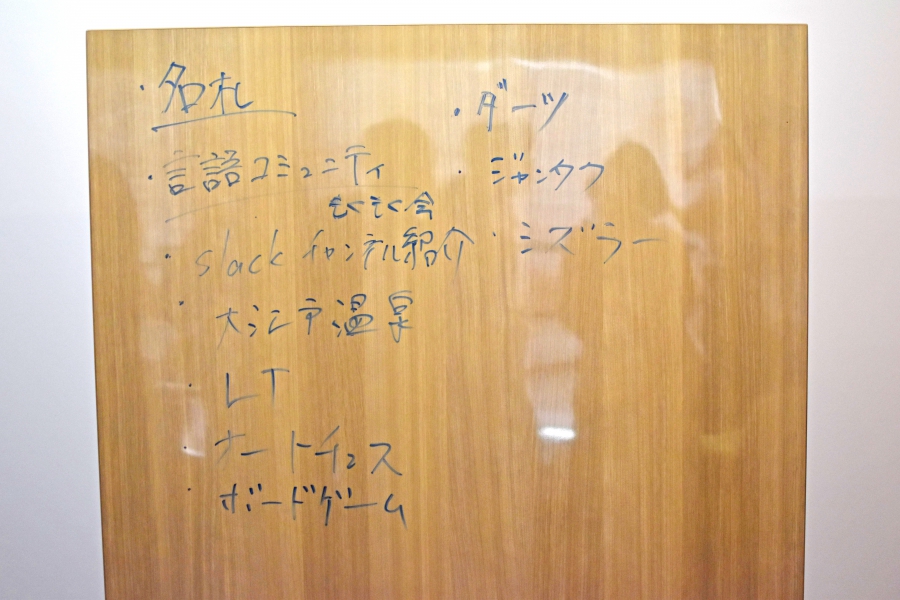 ・名札
・言語コミュニティ
もくもく会
・slack チャンネル紹介
・大江戸温泉
・LT
・ボードゲーム
・ダーツ
・ジャンタク
・ミズラー